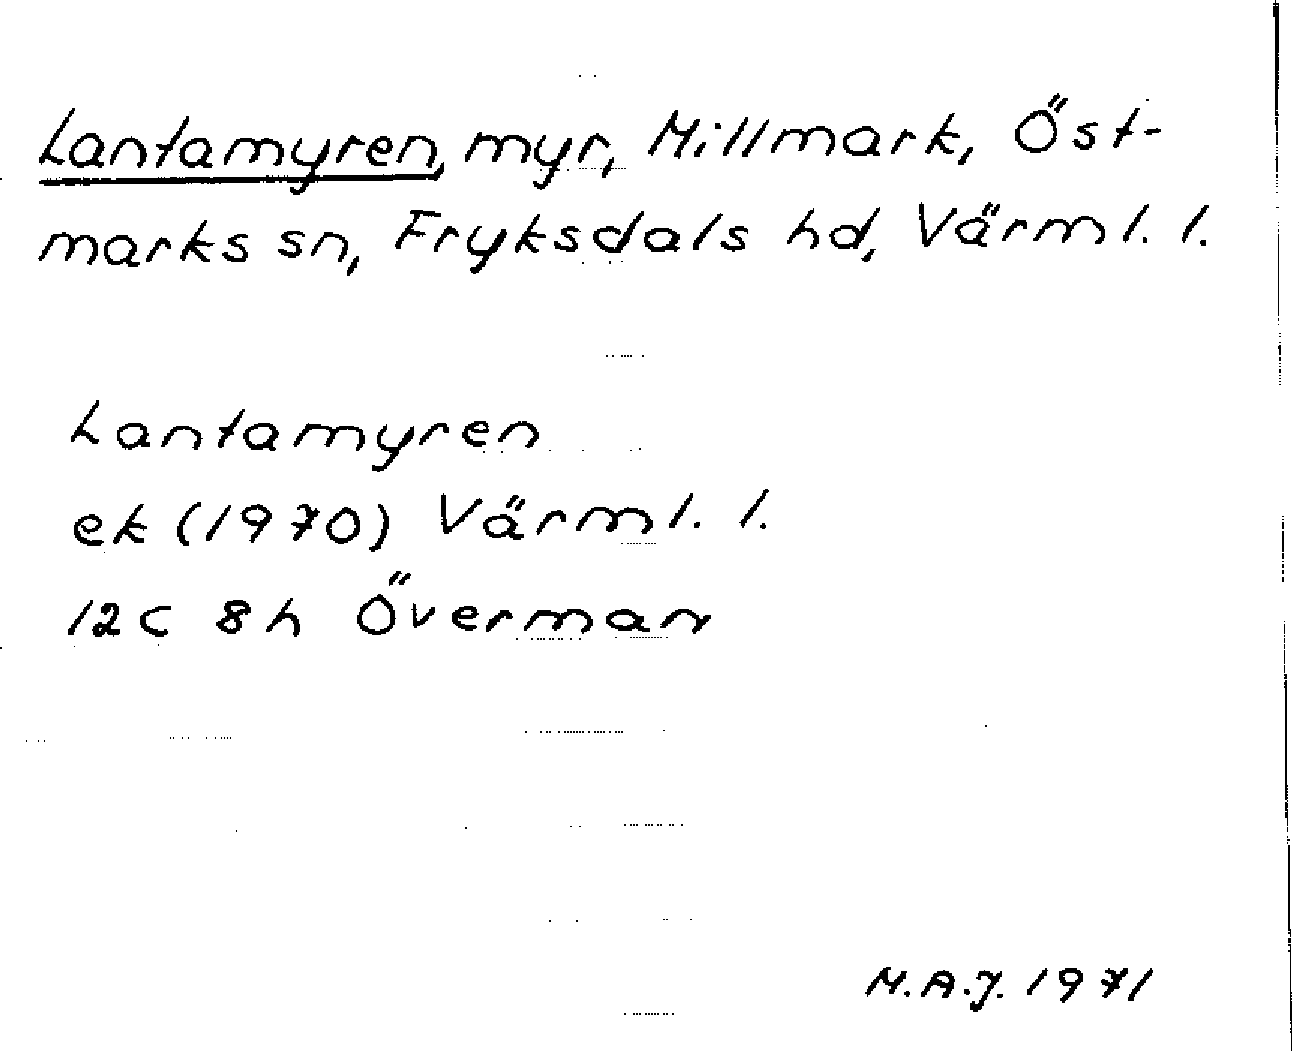 Lantamyren, myr, Millmark, Öst-
marks sn, Fryksdals hd, Värml. l.
Lantamyren
ek (1970) Värml. l.
12 C 8 h Överman
M.A.J. 1971